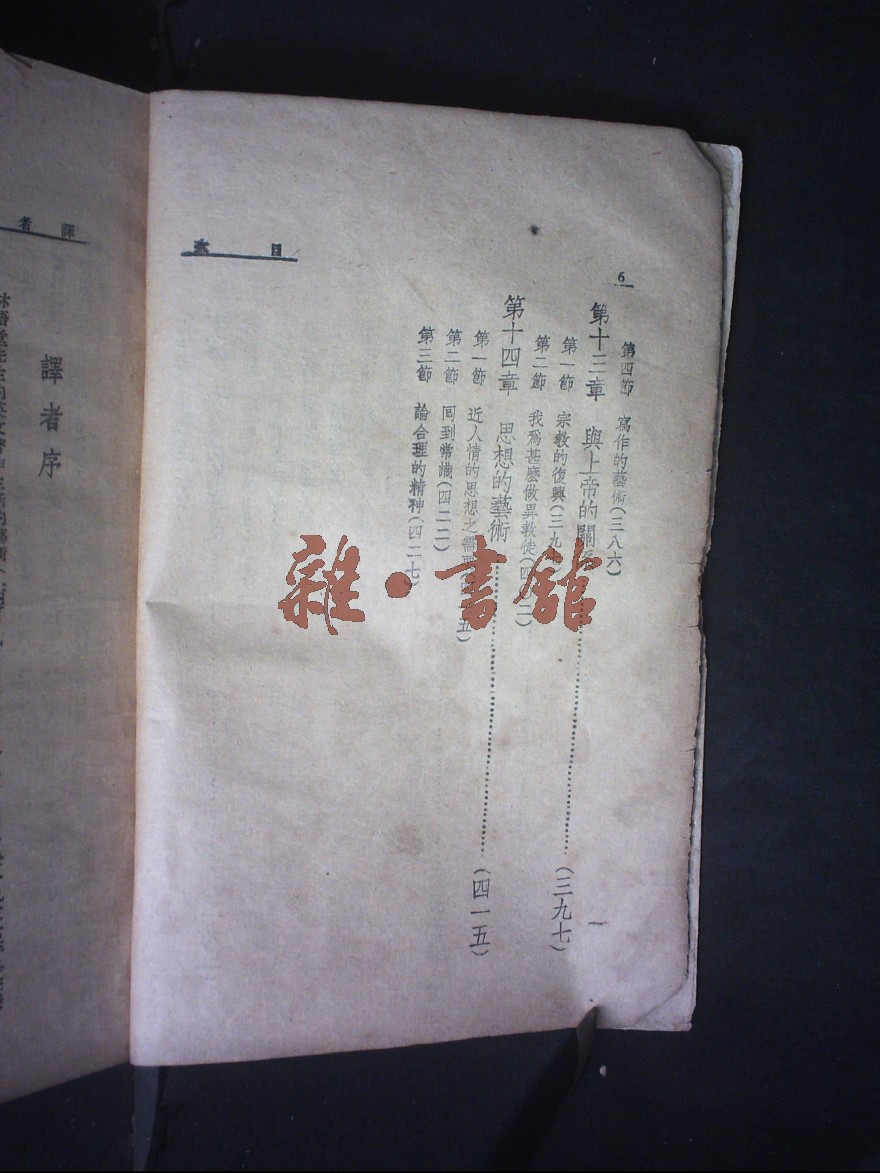 目 次
6
第四節 寫作的藝術(三八六)
第十三章 與上帝的關 (三九七)
第一節 宗教的復興(三九
第二節 我爲甚麼做異教徒(四 二)
第十四章 思想的藝術 (四一五)
第一節 近人情的思想之需要 五)
第二節 囘到常識(四二二)
第三節 論合理的精神(四二七)
雜·書館
譯者
譯者序